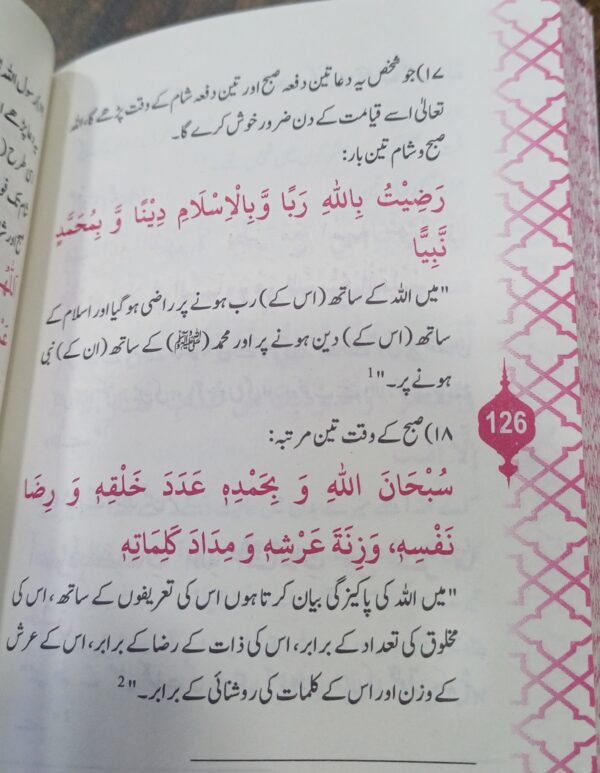 ۱۷) جو شخص یہ دعا تین دفعہ صبح اور تین دفعہ شام کے وقت پڑھے گا، اللہ
تعالیٰ اسے قیامت کے دن ضرور خوش کرے گا۔
صبح و شام تین بار:
رَضِيْتُ بِاللهِ رَبًا وَّبِالْاِسْلَامِ دِيْنًا وَّ بِمُحَمَّدٍ
نَّبِيًّا
"میں اللہ کے ساتھ (اس کے) رب ہونے پر راضی ہو گیا اور اسلام کے
ساتھ (اس کے) دین ہونے پر اور محمد (ﷺ) کے ساتھ (ان کے) نبی
ہونے پر۔"1
126
۱۸) صبح کے وقت تین مرتبہ:
سُبْحَانَ اللهِ وَ بِحَمْدِهٖ عَدَدَ خَلْقِهٖ وَ رِضَا
نَفْسِهٖ، وَزِنَةَ عَرْشِهٖ وَ مِدَادَ كَلِمَاتِهٖ
"میں اللہ کی پاکیزگی بیان کرتا ہوں اس کی تعریفوں کے ساتھ، اس کی
مخلوق کی تعداد کے برابر، اس کی ذات کے رضا کے برابر، اس کے عرش
کے وزن اور اس کے کلمات کی روشنائی کے برابر۔"2